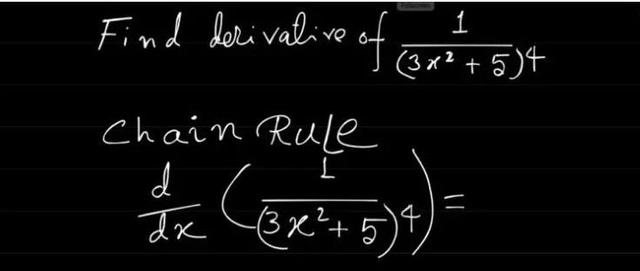 Find derivative of 1/(3x² + 5)4
Chain Rule
d/dx (1/(3x²+5)4) =